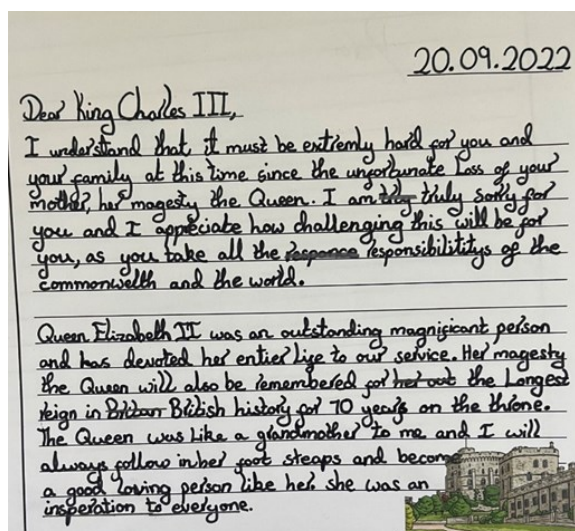 20.09.2022
Dear King Charles III,
I understand that it must be extremly hard for you and
your family at this time since the unfortunate loss of your
mother, her magesty the Queen. I am truly sorry for
you and I appreciate how challenging this will be for
you, as you take all the responce responsibilititys of the
commonwelth and the world.
Queen Elizabeth II was an outstanding magnificant person
and has devoted her entier life to our service. Her magesty
the Queen will also be remembered for her out the Longest
reign in British history for 70 years on the throne.
The Queen was like a grandmother to me and I will
always follow in her foot steaps and become
a good loving person like her. she was an
insperation to everyone.